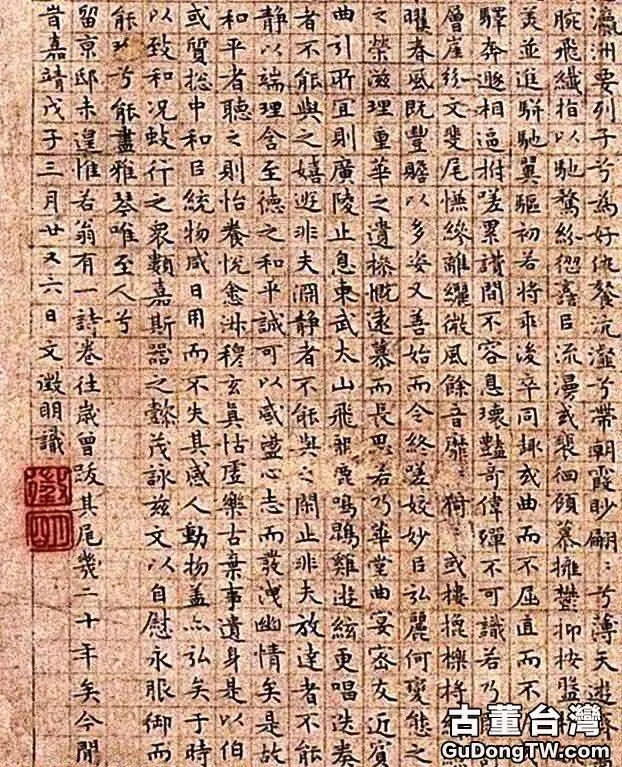 瀛洲要列子兮為好仇餐沆瀣兮帶朝霞眇翩〻兮薄天遊
腕飛纖指以馳騖紛譶㠯流漫或裴回顧慕擁鬱抑按盤
美並進駢馳翼驅初若將乖後卒同趣或曲而不屈直而不
驛奔遯相逼拊嗟累讚間不容息瓌豔奇偉殫不可識若乃
層崖紛文斐尾慊縿離纚微風餘音靡〻猗〻或摟搜櫟捋
曜春風既豐贍以多姿又善始而令終嗟姣妙㠯弘麗何變態之
之榮滋理重華之遺操慨遠慕而長思若乃華堂曲宴密友近賓
曲引所宜則廣陵止息東武太山飛龍鹿鳴鵾雞遊絃更唱迭奏
者不能與之嬉遊非夫淵靜者不能與之閑止非夫放達者不能
靜以端理含至德之和平誠可以感盪心志而發洩幽情矣是故
和平者聽之則怡養悅悆淑穆玄真恬虛樂古棄事遺身是以伯
或質揔中和㠯統物咸日用而不失其感人動物盖亦弘矣于時
以致和況蚑行之眾類嘉斯器之懿茂詠茲文以自慰永服御而
能珍兮能盡雅琴唯至人兮
留京邸未遑惟若翁有一詩卷往歲曾跋其尾幾二十年矣今閱
旹嘉靖戊子三月廿又六日文徵明識
徵明
古董台灣
GuDongTW.com